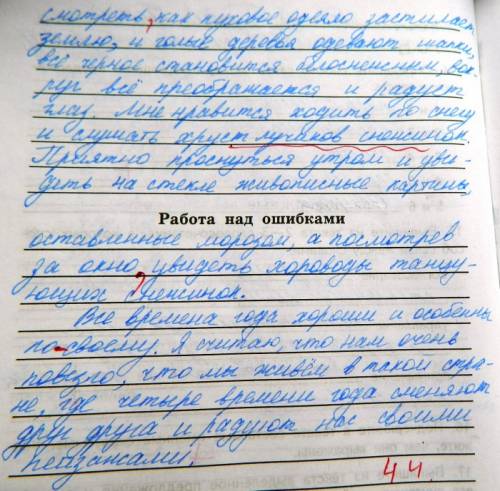 смотреть, как пуховое одеяло застилает
землю, и голые деревья одевают шапки,
всё чёрное становится белоснежным, вок-
руг всё преображается и радует
глаз. Мне нравится ходить по снегу
и слушать хруст лучиков снежинок.
Приятно проснуться утром и уви-
деть на стекле живописные картины,
Работа над ошибками
оставленные морозом, а посмотрев
за окно, увидеть хороводы танцу-
ющих снежинок.
Все времена года хороши и особенны
по-своему. Я считаю, что нам очень
повезло, что мы живём в такой стра-
не, где четыре времени года сменяют
друг друга и радуют нас своими
пейзажами.
4 4.